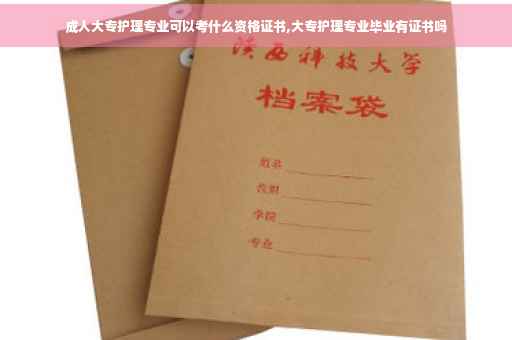 成人大专护理专业可以考什么资格证书,大专护理专业毕业有证书吗
陕西科技大学
档案袋
姓名
学院
专业